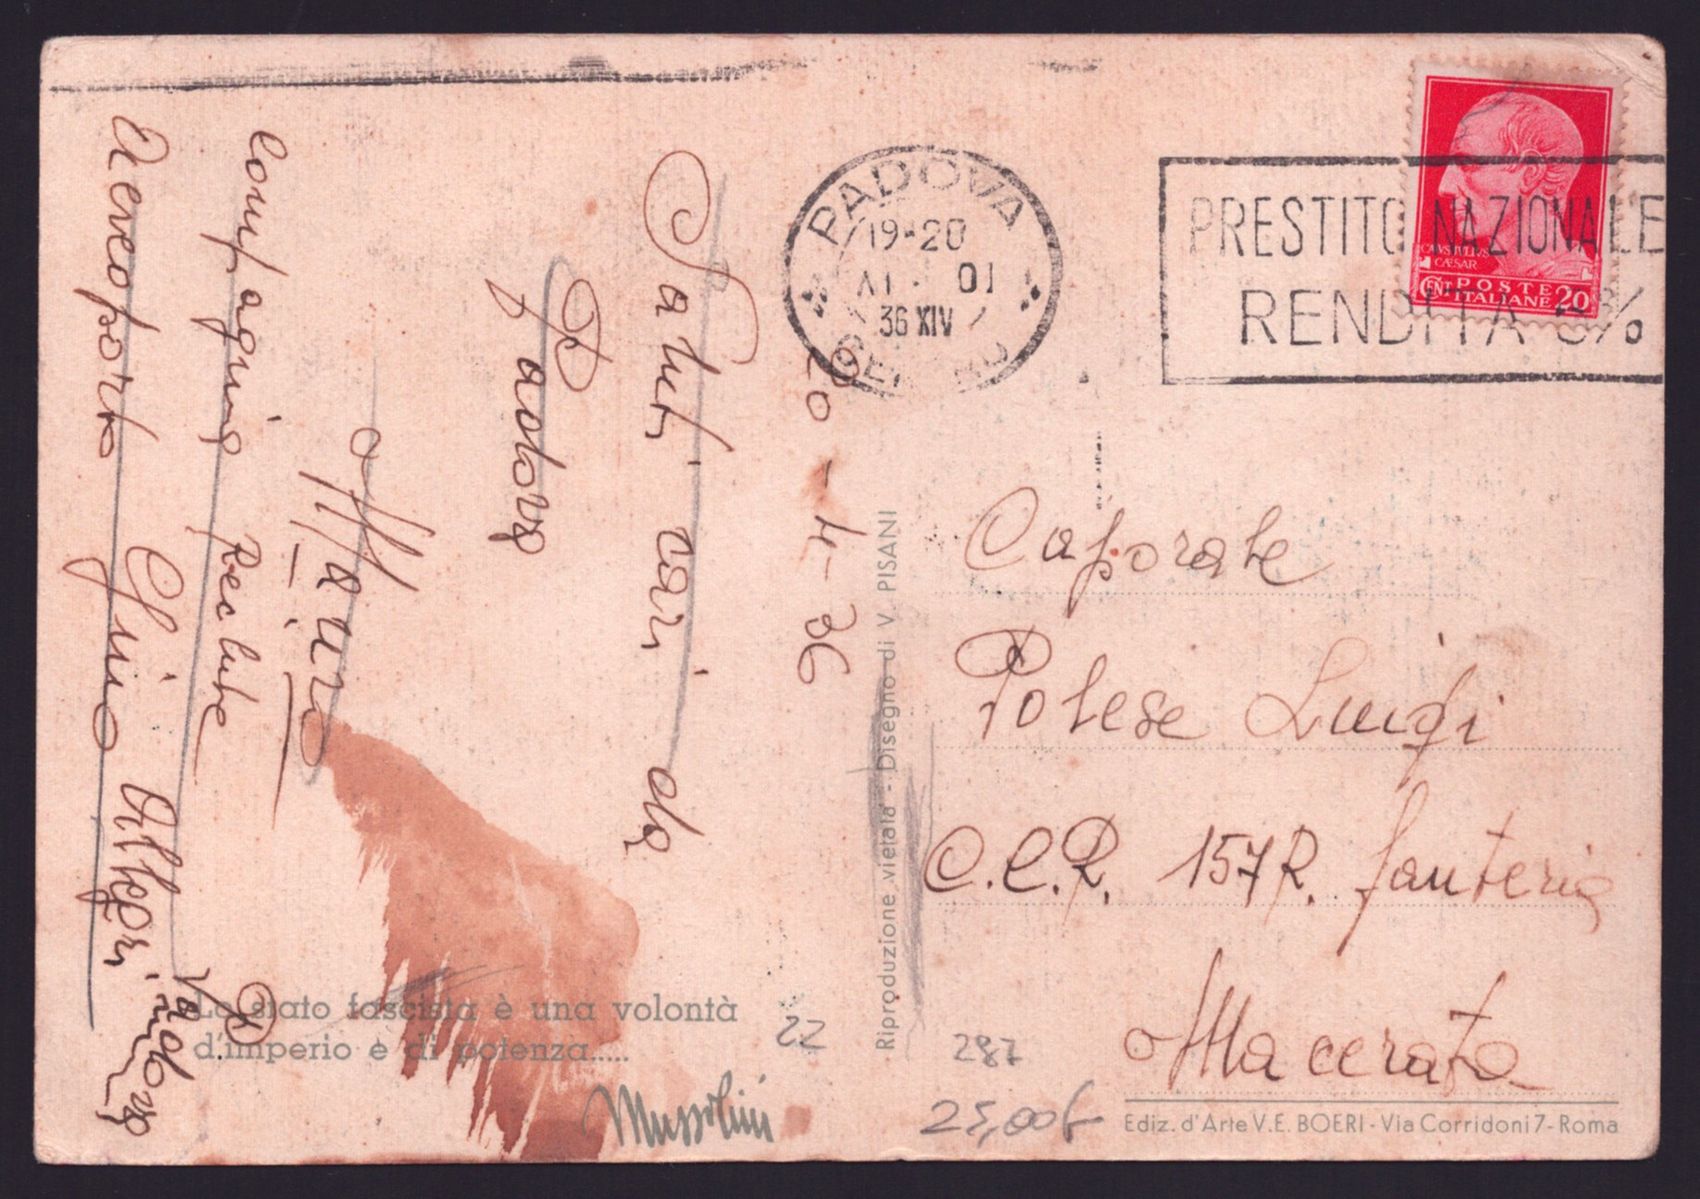 20-4-36
Saluti cari da
Padova
Mauro
Compagnia Reclute P
Aeroporto Gino Allegri
Padova
Lo stato fascista è una volontà
d'imperio e di potenza.....
Mussolini
22
Riproduzione vietata - Disegno di V. PISANI
PADOVA
19-20
01
36 XIV
PRESTITO NAZIONALE
RENDITA 5%
CAIVS IVLIVS
CAESAR
POSTE
CENT ITALIANE 20
Caporale
Polese Luigi
C.C.R. 157 R. fanteria
Macerata
287
25,00 €
Ediz. d'Arte V.E. BOERI - Via Corridoni 7 - Roma